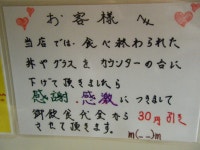 お客様へ
当店では、食べ終わられた
丼やグラスをカウンターの台に
下げて頂きましたら
感謝、感激につきまして
御飲食代金から30円引き
させて頂きます。
m(__)m